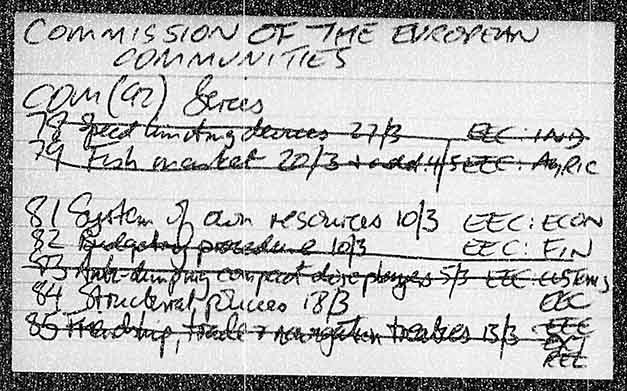 COMMISSION OF THE EUROPEAN
COMMUNITIES
COM(92) Series
78 Speed limiting devices 27/3 EEC: IND
79 Fish market 20/3 + add. 4/5 EEC: AGRIC
81 System of own resources 10/3 EEC: ECON
82 Budgetary procedure 10/3 EEC: FIN
83 Anti-dumping compact disc players 5/3 EEC: CUSTOMS
84 Structural policies 18/3 EEC
85 Friendship, trade & navigation treaties 13/3 EEC
EXT
REL